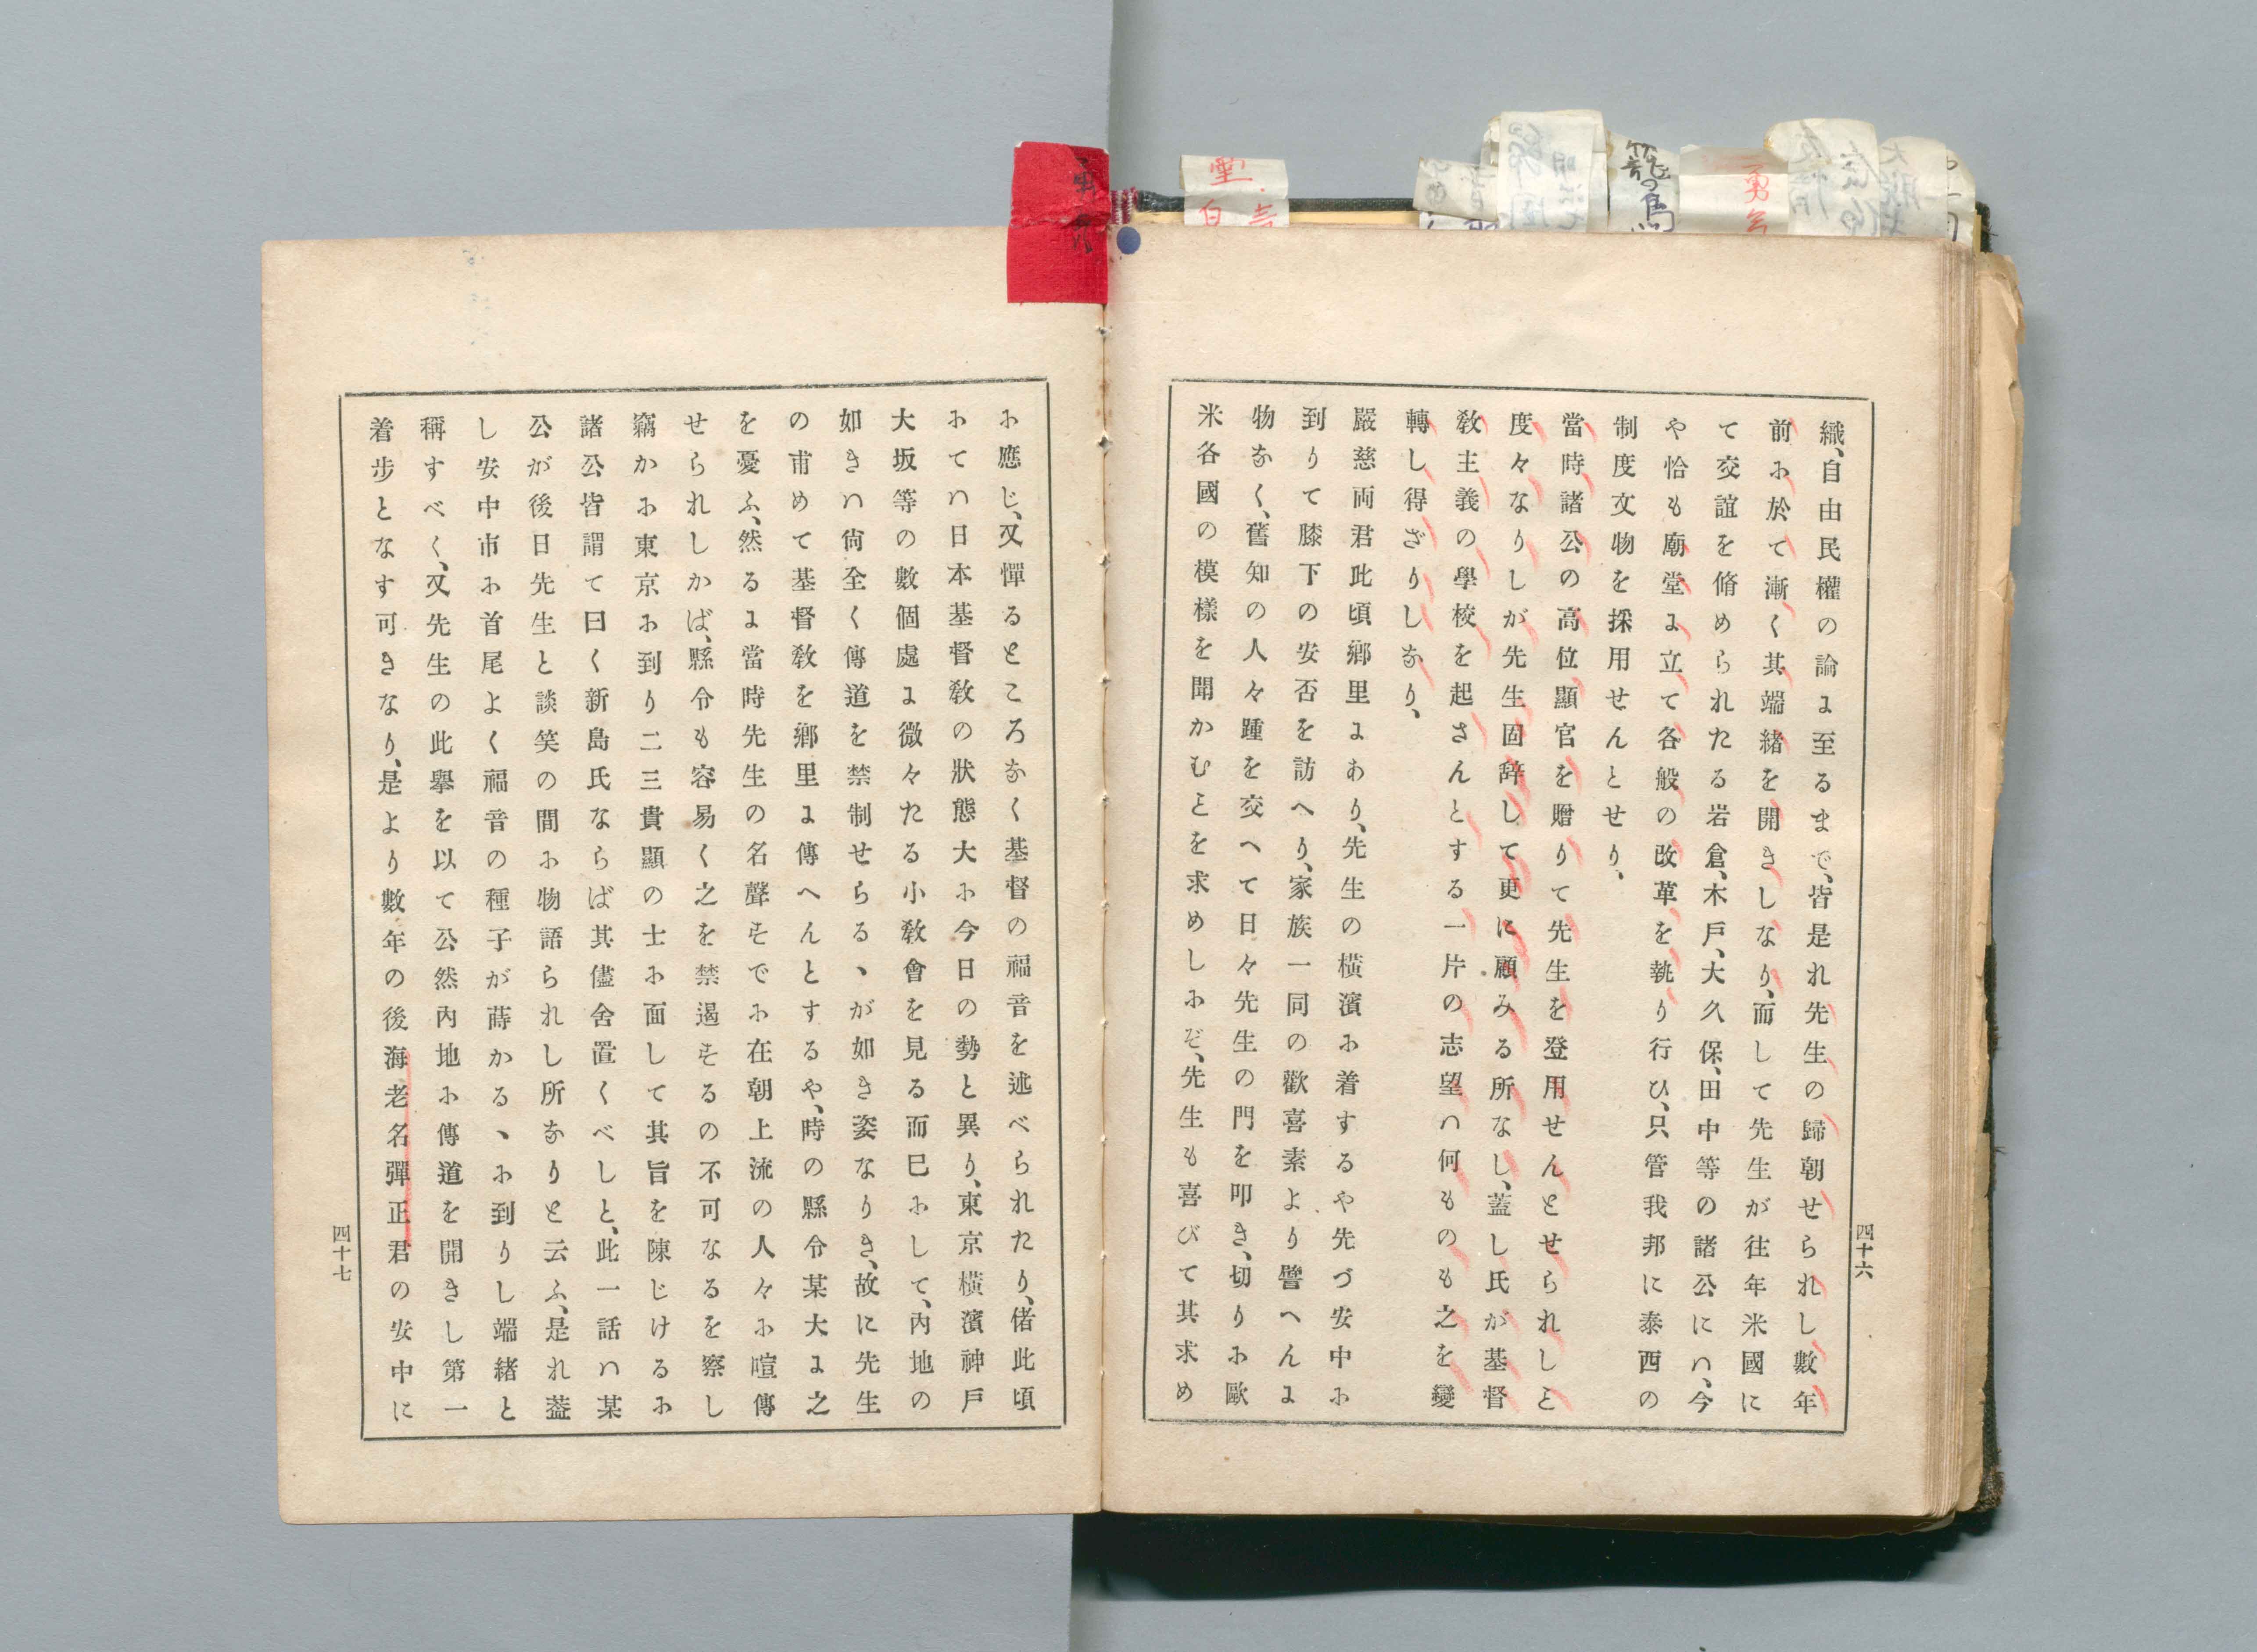 織、自由民權の論に至るまで、皆是れ先生の歸朝せられし數年
前に於て漸く其端緒を開きしなり、而して先生が往年米國に
て交誼を脩められたる岩倉、木戸、大久保、田中等の諸公にハ、今
や恰も廟堂に立て各般の改革を執り行ひ、只管我邦に泰西の
制度文物を採用せんとせり、
當時諸公の高位顯官を贈りて先生を登用せんとせられしと
度々なりしが先生固辞して更に顧みる所なし、蓋し氏が基督
敎主義の學校を起さんとする一片の志望ハ何ものも之を變
轉し得ざりしなり、
嚴慈両君此頃鄕里にあり、先生の橫濱に着するや先づ安中に
到りて膝下の安否を訪へり、家族一同の歡喜素より譬へんに
物なく、舊知の人々踵を交へて日々先生の門を叩き、切りに歐
米各國の模樣を聞かむとを求めしにぞ、先生も喜びて其求め
四十六
に應じ、又憚るところなく基督の福音を述べられたり、偖此頃
にてハ日本基督敎の狀態大に今日の勢と異り、東京橫濱神戸
大坂等の數個處に微々たる小敎會を見る而已にして、內地の
如きハ尙全く傳道を禁制せらるヽが如き姿なりき、故に先生
の甫めて基督敎を鄕里に傳へんとするや、時の縣令某大に之
を憂ふ、然るに當時先生の名聲すでに在朝上流の人々に喧傳
せられしかば、縣令も容易く之を禁遏するの不可なるを察し
竊かに東京に到り二三貴顯の士に面して其旨を陳じけるに
諸公皆謂て曰く新島氏ならば其儘舍置くべしと、此一話ハ某
公が後日先生と談笑の間に物語られし所なりと云ふ、是れ葢
し安中市に首尾よく福音の種子が蒔かるヽに到りし端緖と
稱すべく、又先生の此擧を以て公然內地に傳道を開きし第一
着步となす可きなり、是より數年の後海老名彈正君の安中に
四十七
籠の鳥
勇氣